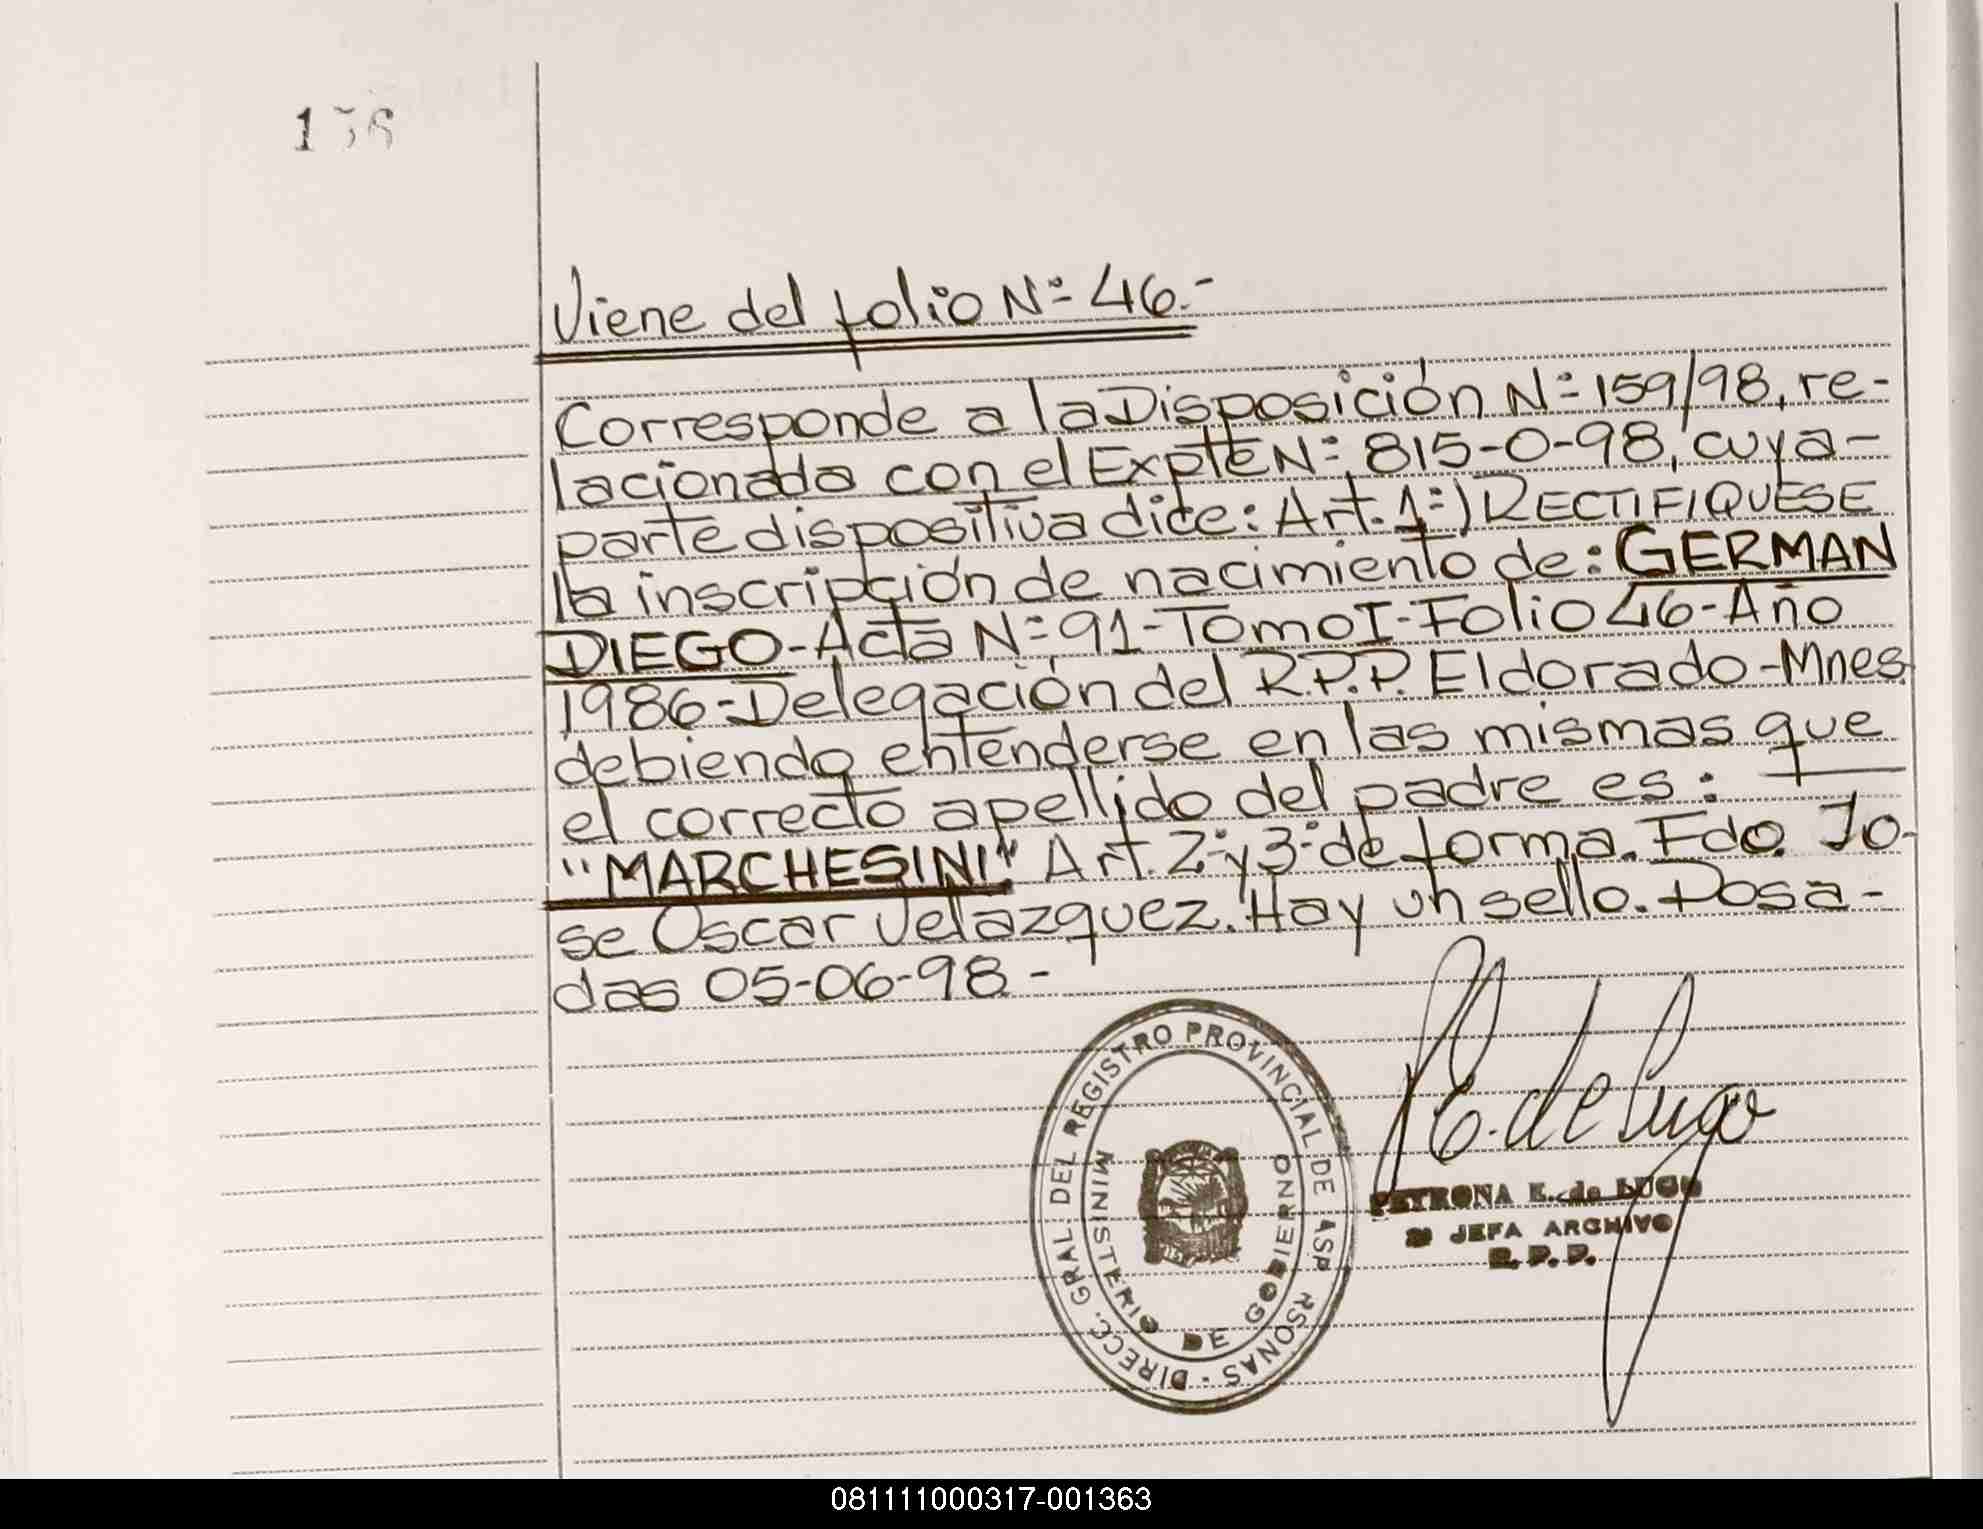 Viene del folio Nº 46.-
Corresponde a la Disposición Nº 159/98, re-
lacionada con el Expte Nº 815-0-98, cuya-
parte dispositiva dice: Art. 1º) RECTIFIQUESE
la inscripción de nacimiento de: GERMAN
DIEGO-Acta Nº 91-Tomo I-Folio 46-Año
1986-Delegación del R.P.P. Eldorado-Mnes.
debiendo entenderse en las mismas que
el correcto apellido del padre es:
"MARCHESINI" Art. 2º y 3º de forma. Fdo. Jo-
se Oscar Velazquez. Hay un sello. Posa-
das 05-06-98.-
DIRECC. GRAL DEL REGISTRO PROVINCIAL DE
MINISTERIO DE GOBIERNO
P E. de Lugo
PETRONA E. de LUGO
JEFA ARCHIVO
R.P.P.
081111000317-001363